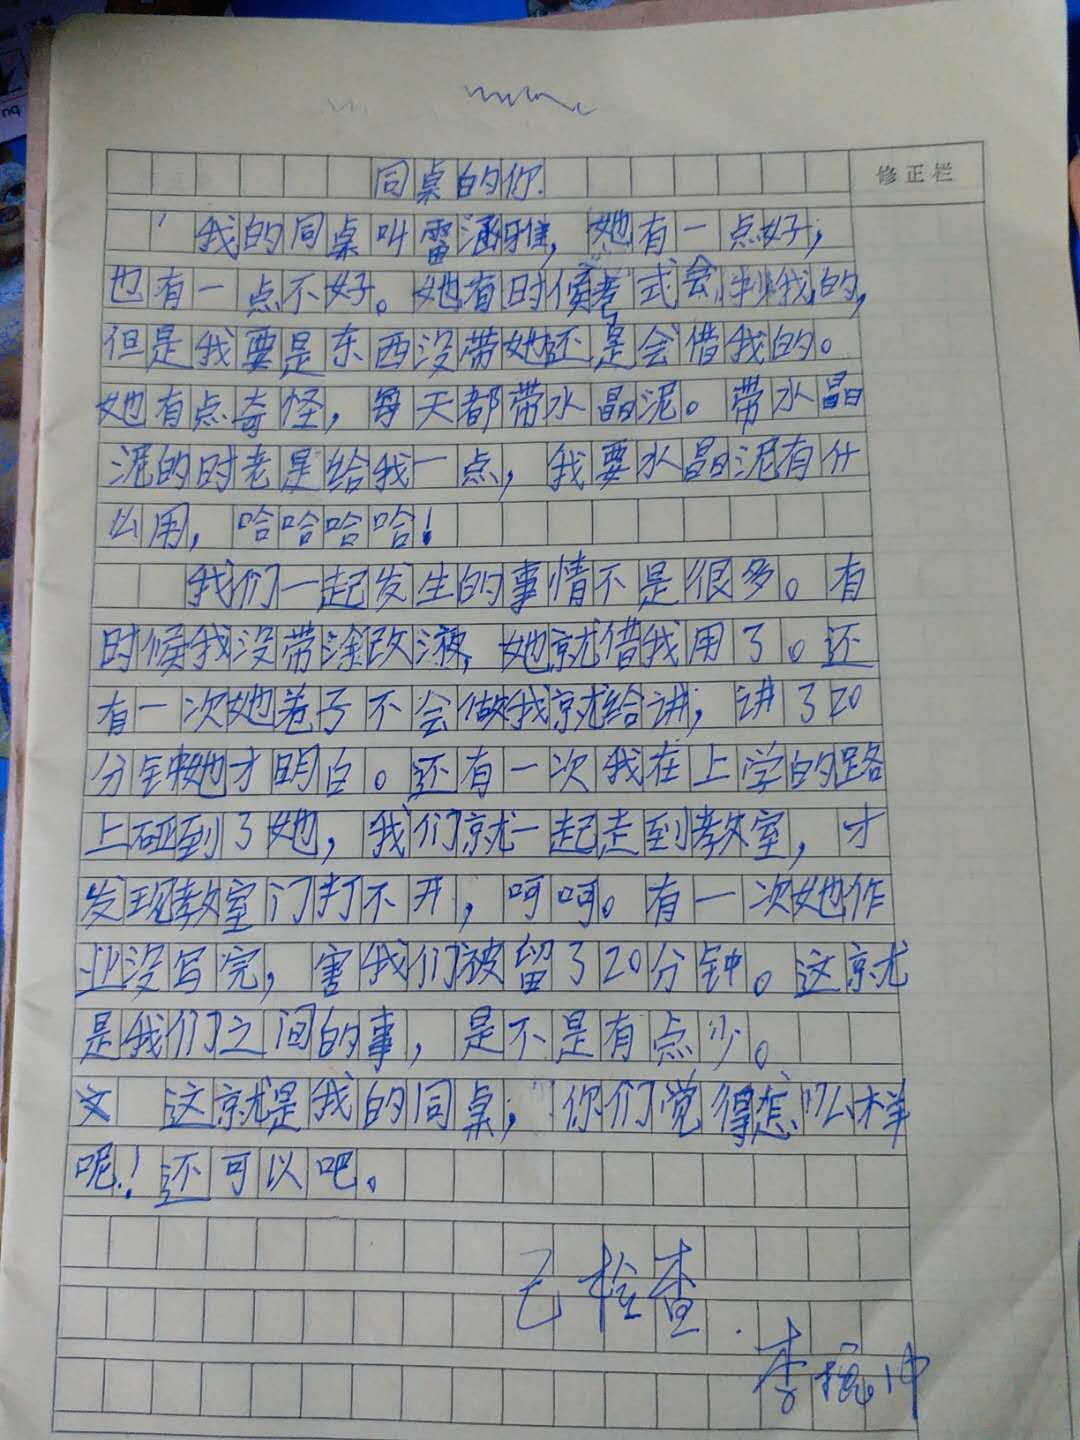 同桌的你
修正栏
我的同桌叫雷涵雅，她有一点好，
也有一点不好。她有时候考式会抄我的，
但是我要是东西没带她还是会借我的。
她有点奇怪，每天都带水晶泥。带水晶
泥的时老是给我一点，我要水晶泥有什
么用，哈哈哈哈！
我们一起发生的事情不是很多。有
时候我没带涂改液，她就借我用了。还
有一次她卷子不会做我就给讲，讲了20
分钟她才明白。还有一次我在上学的路
上碰到了她，我们就一起走到教室，才
发现教室门打不开，呵呵。有一次她作
业没写完，害我们被留了20分钟。这就
是我们之间的事，是不是有点少。
这就是我的同桌，你们觉得怎么样
呢！还可以吧。
已检查.
李